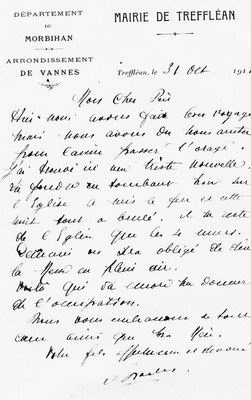 DÉPARTEMENT
DU
MORBIHAN
ARRONDISSEMENT
DE VANNES
MAIRIE DE TREFFLÉAN
Treffléan, le 31 Oct 191
Mon Cher Père
nous avons fait bon voyage
mais nous avons dû nous arrêter
pour laisser passer l'orage.
J'ai trouvé ici une triste nouvelle,
la foudre en tombant hier sur
l'Eglise a mis le feu et cette
nuit tout a brûlé. il ne reste
de l'Eglise que les 4 murs.
on sera obligé de dire
la Messe en plein air.
Voilà qui va encore me donner
de l'occupation.
Nous vous embrassons de tout
cœur ainsi que Mère.
Votre fils affectueux et dévoué